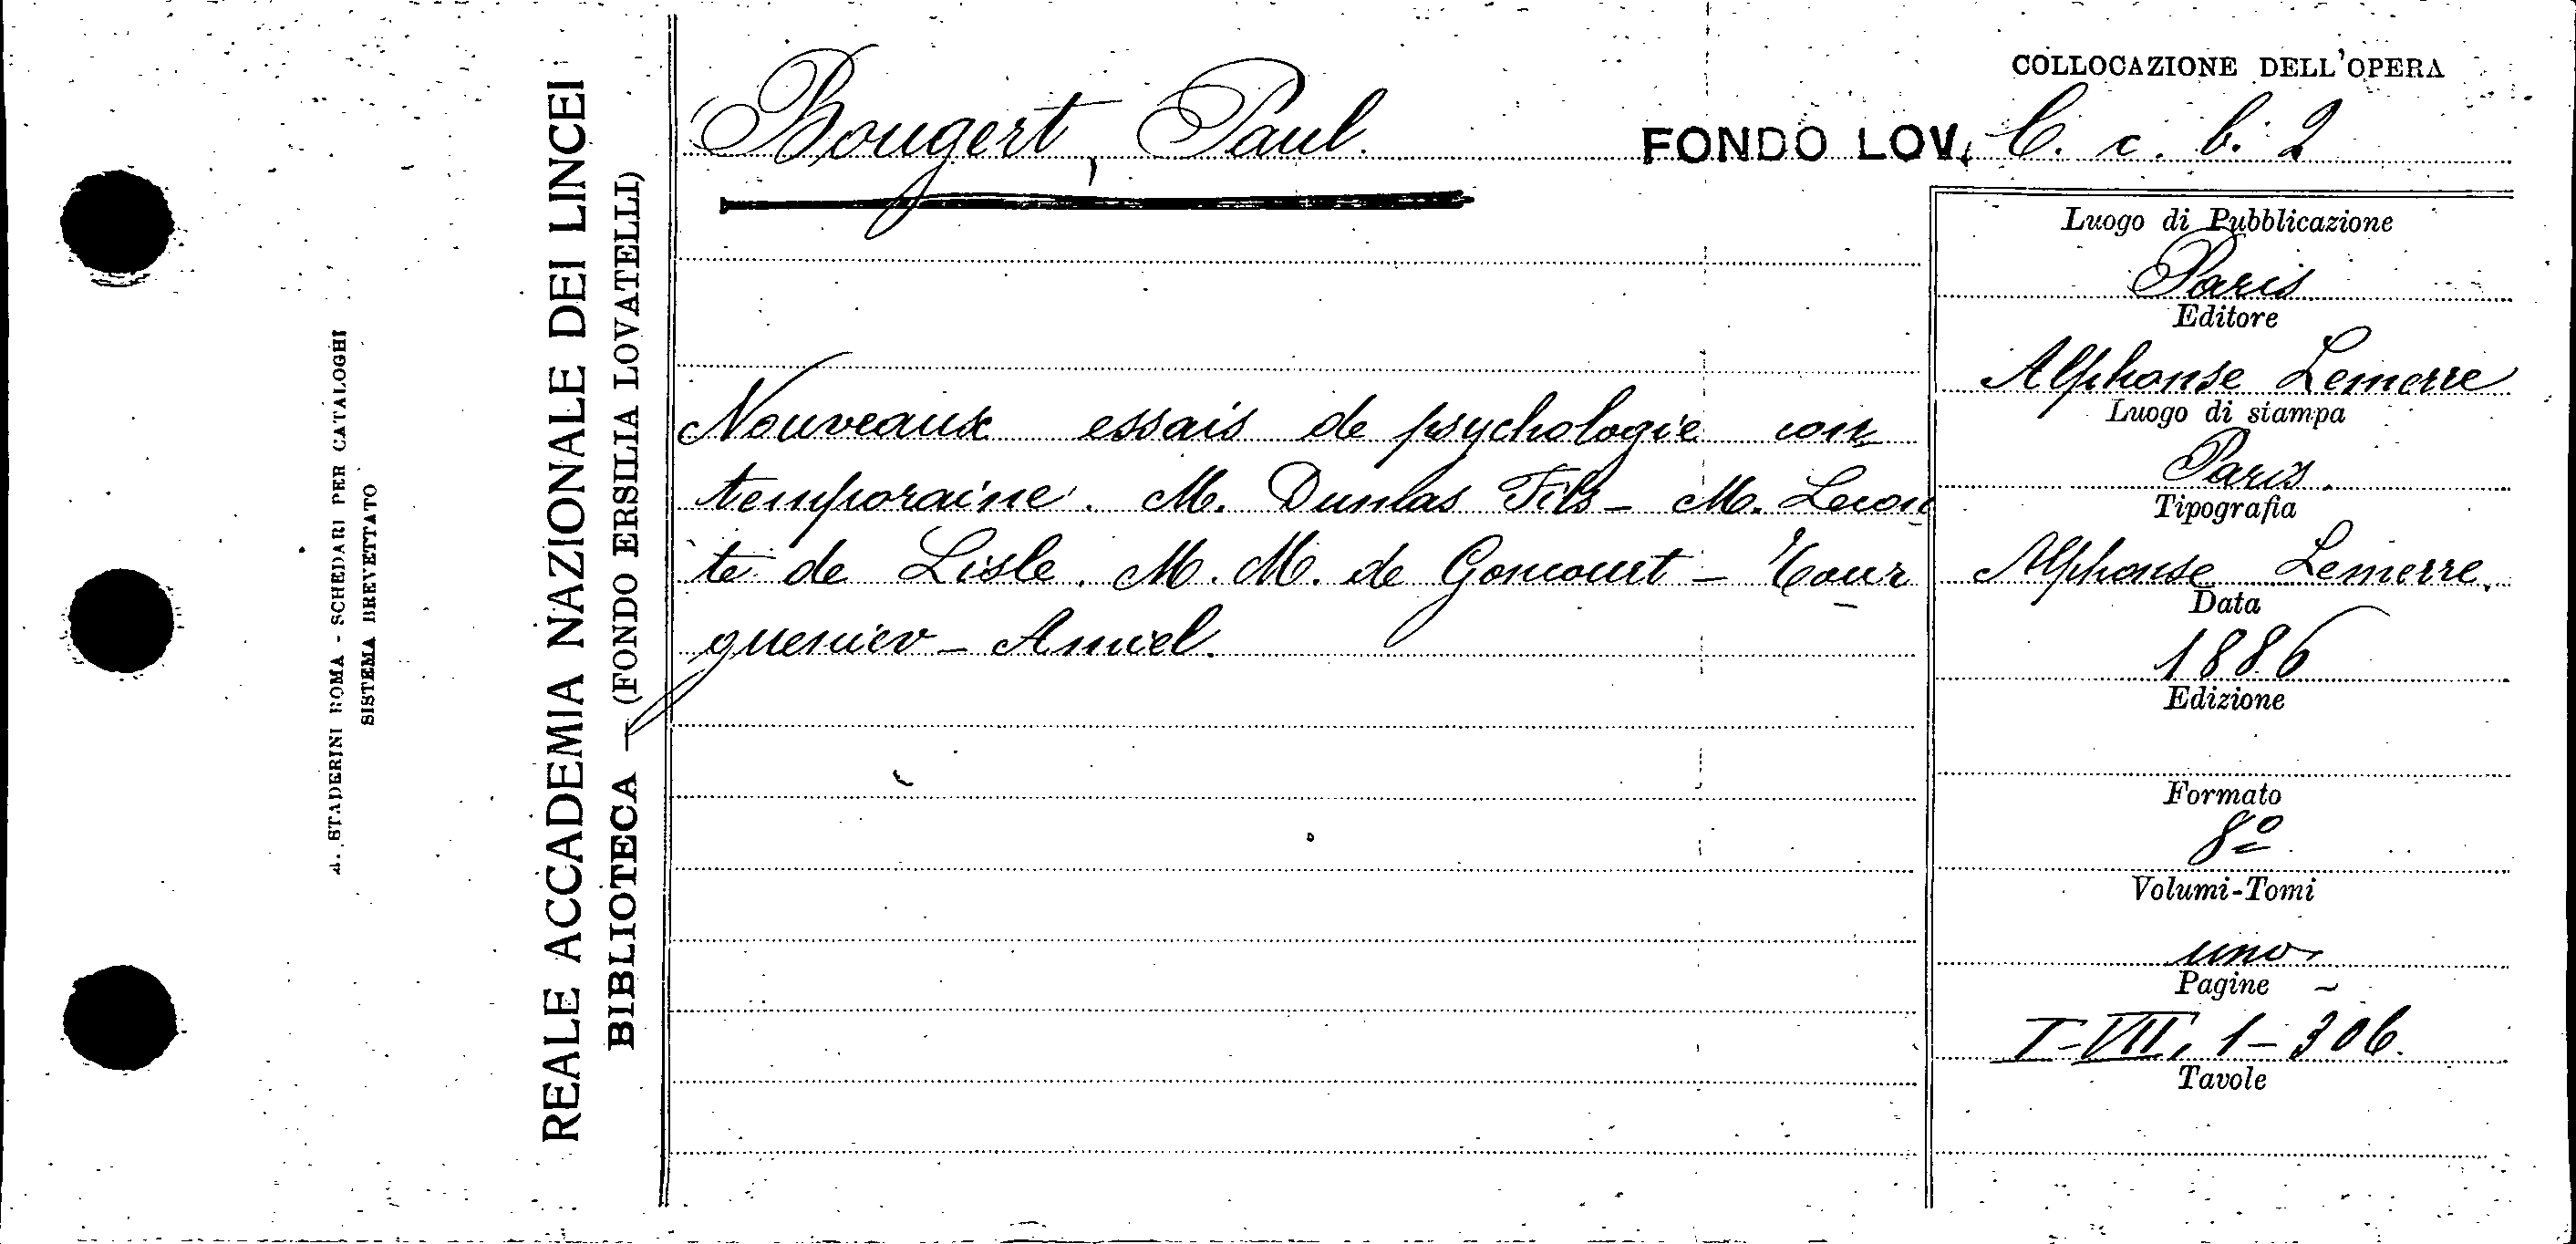 A. STADERINI ROMA - SCHEDARI PER CATALOGHI
SISTEMA BREVETTATO
REALE ACCADEMIA NAZIONALE DEI LINCEI
BIBLIOTECA — (FONDO ERSILIA LOVATELLI)
Bougert, Paul.
Nouveaux essais de psychologie con
temporaine. M. Dumas Fils - M. Lecon
te de Lisle. M. M. de Goncourt - Tour
gueniev - Amiel.
COLLOCAZIONE DELL'OPERA
FONDO LOV. C. c. b. 2
Luogo di Pubblicazione
Paris
Editore
Alphonse Lemerre
Luogo di stampa
Paris.
Tipografia
Alphonse Lemerre.
Data
1886
Edizione
Formato
8º
Volumi-Tomi
uno
Pagine
I-VII, 1-306.
Tavole